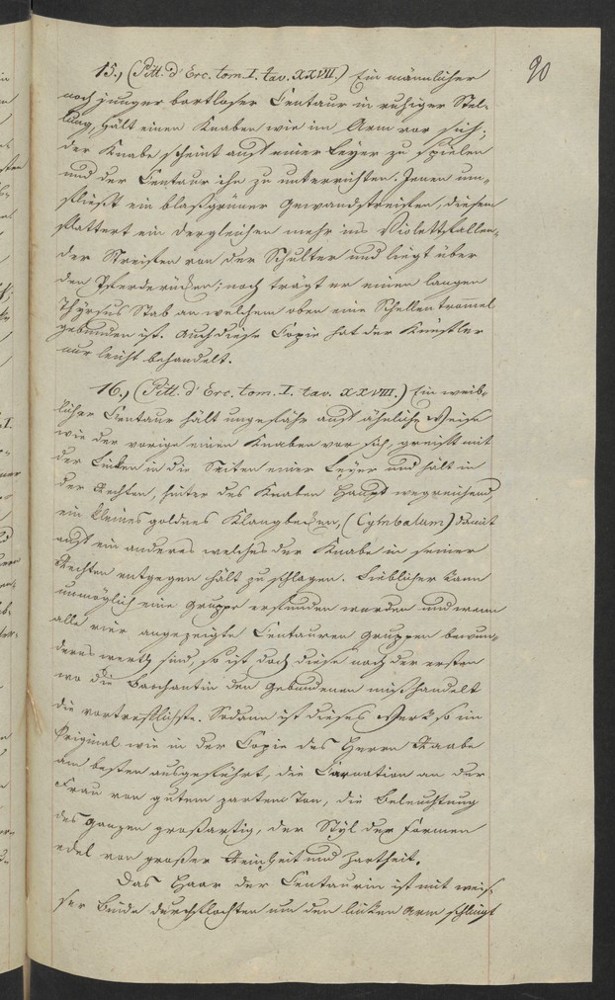 90
15., (Pitt. d'Erc. tom. I. tav. XXVII.) Ein männlicher
noch junger bartloser Centaur in ruhiger Stel-
lung, hält einen Knaben wie im Arm vor sich;
der Knabe scheint auf einer Leyer zu spielen
und der Centaur ihn zu unterrichten. Jenen um-
fließt ein blaßgrüner Gewandstreifen, diesem
flattert ein dergleichen mehr ins Violettfallen-
der Streifen von der Schulter und liegt über
den Pferderücken; noch trägt er einen langen
Thyrsus Stab an welchem oben eine Schellentrommel
gebunden ist. Auch diese Copie hat der Künstler
nur leicht behandelt.
16., (Pitt. d'Erc. tom. I. tav. XXVIII.) Ein weib-
licher Centaur hält ungefähr auf ähnliche Weise
wie der vorige einen Knaben vor sich, greift mit
der Linken in die Seiten einer Leyer und hält in
der Rechten, hinter des Knaben Haupt wegreichend
ein kleines goldnes Klangbecken, (Cymbalum) damit
auf ein anderes welches der Knabe in seiner
Rechten entgegen hält zu schlagen. Lieblicher kann
unmöglich eine Gruppe erfunden werden und wenn
alle vier angezeigte Centauren Gruppen bewun-
derns werth sind, so ist doch diese nach der ersten
wo die Bacchantin den Gebundenen mißhandelt
die vortreflichste. Sodann ist dieses Werk so im
Original wie in der Copie des Herrn Raabe
am besten ausgeführt, die Carnation an der
Frau von gutem zarten Ton, die Beleuchtung
des Ganzen großartig, der Styl der Formen
edel von großer Reinheit und Zartheit.
Das Haar der Centaurin ist mit weis-
ser Binde durchflochten um den linken Arm schlingt